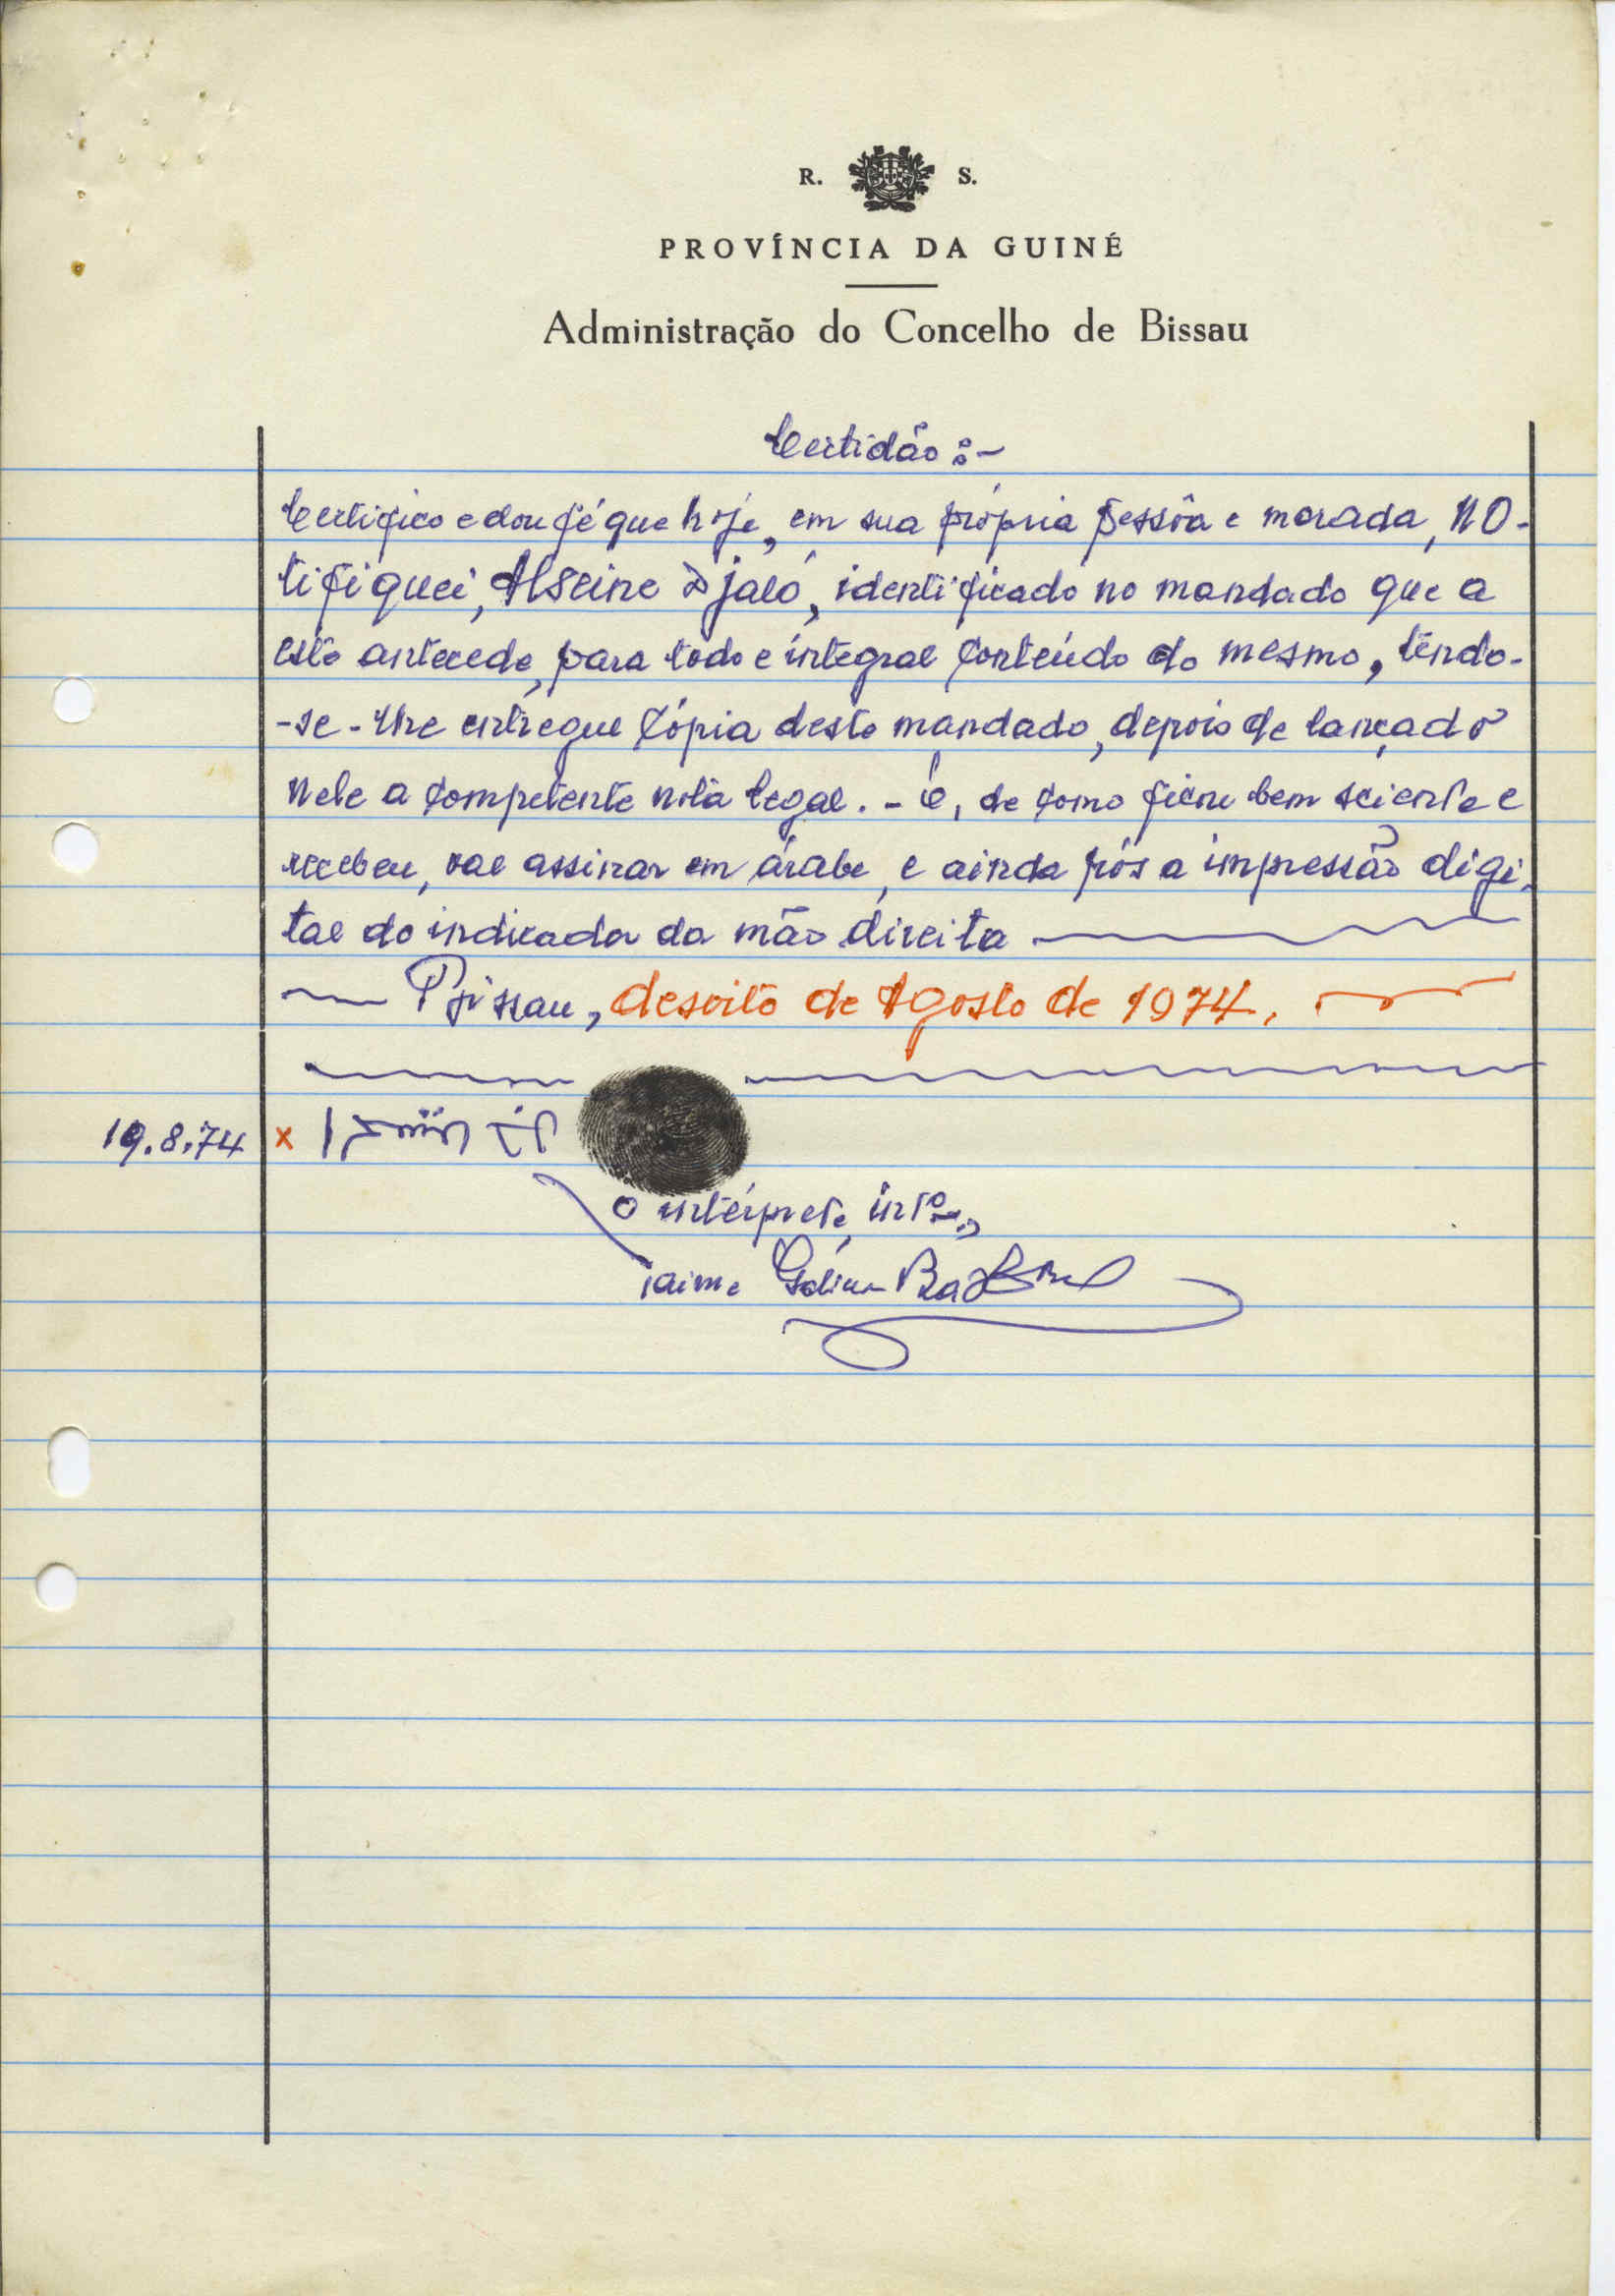 R. S.
PROVÍNCIA DA GUINÉ
Administração do Concelho de Bissau
Certidão:-
Certifico e dou fé que hoje, em sua própria pessôa e morada, no-
tifiquei, Alseine Djaló, identificado no mandado que a
este antecede, para todo e integral conteúdo do mesmo, tendo-
-se-lhe entregue cópia deste mandado, depois de lançado
nele a competente nota legal. - E, de como ficou bem sciente e
recebeu, vae assinar em árabe, e ainda pôs a impressão digi-
tal do indicador da mão direita
Bissau, desoito de Agosto de 1974.
19.8.74 x
O intérprete, intº.,
Jaime